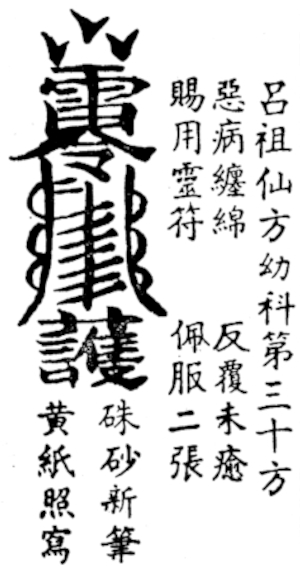 呂祖仙方幼科第三十方
惡病纏綿 反覆未癒
賜用靈符 佩服二張
護
硃砂新筆
黃紙照寫